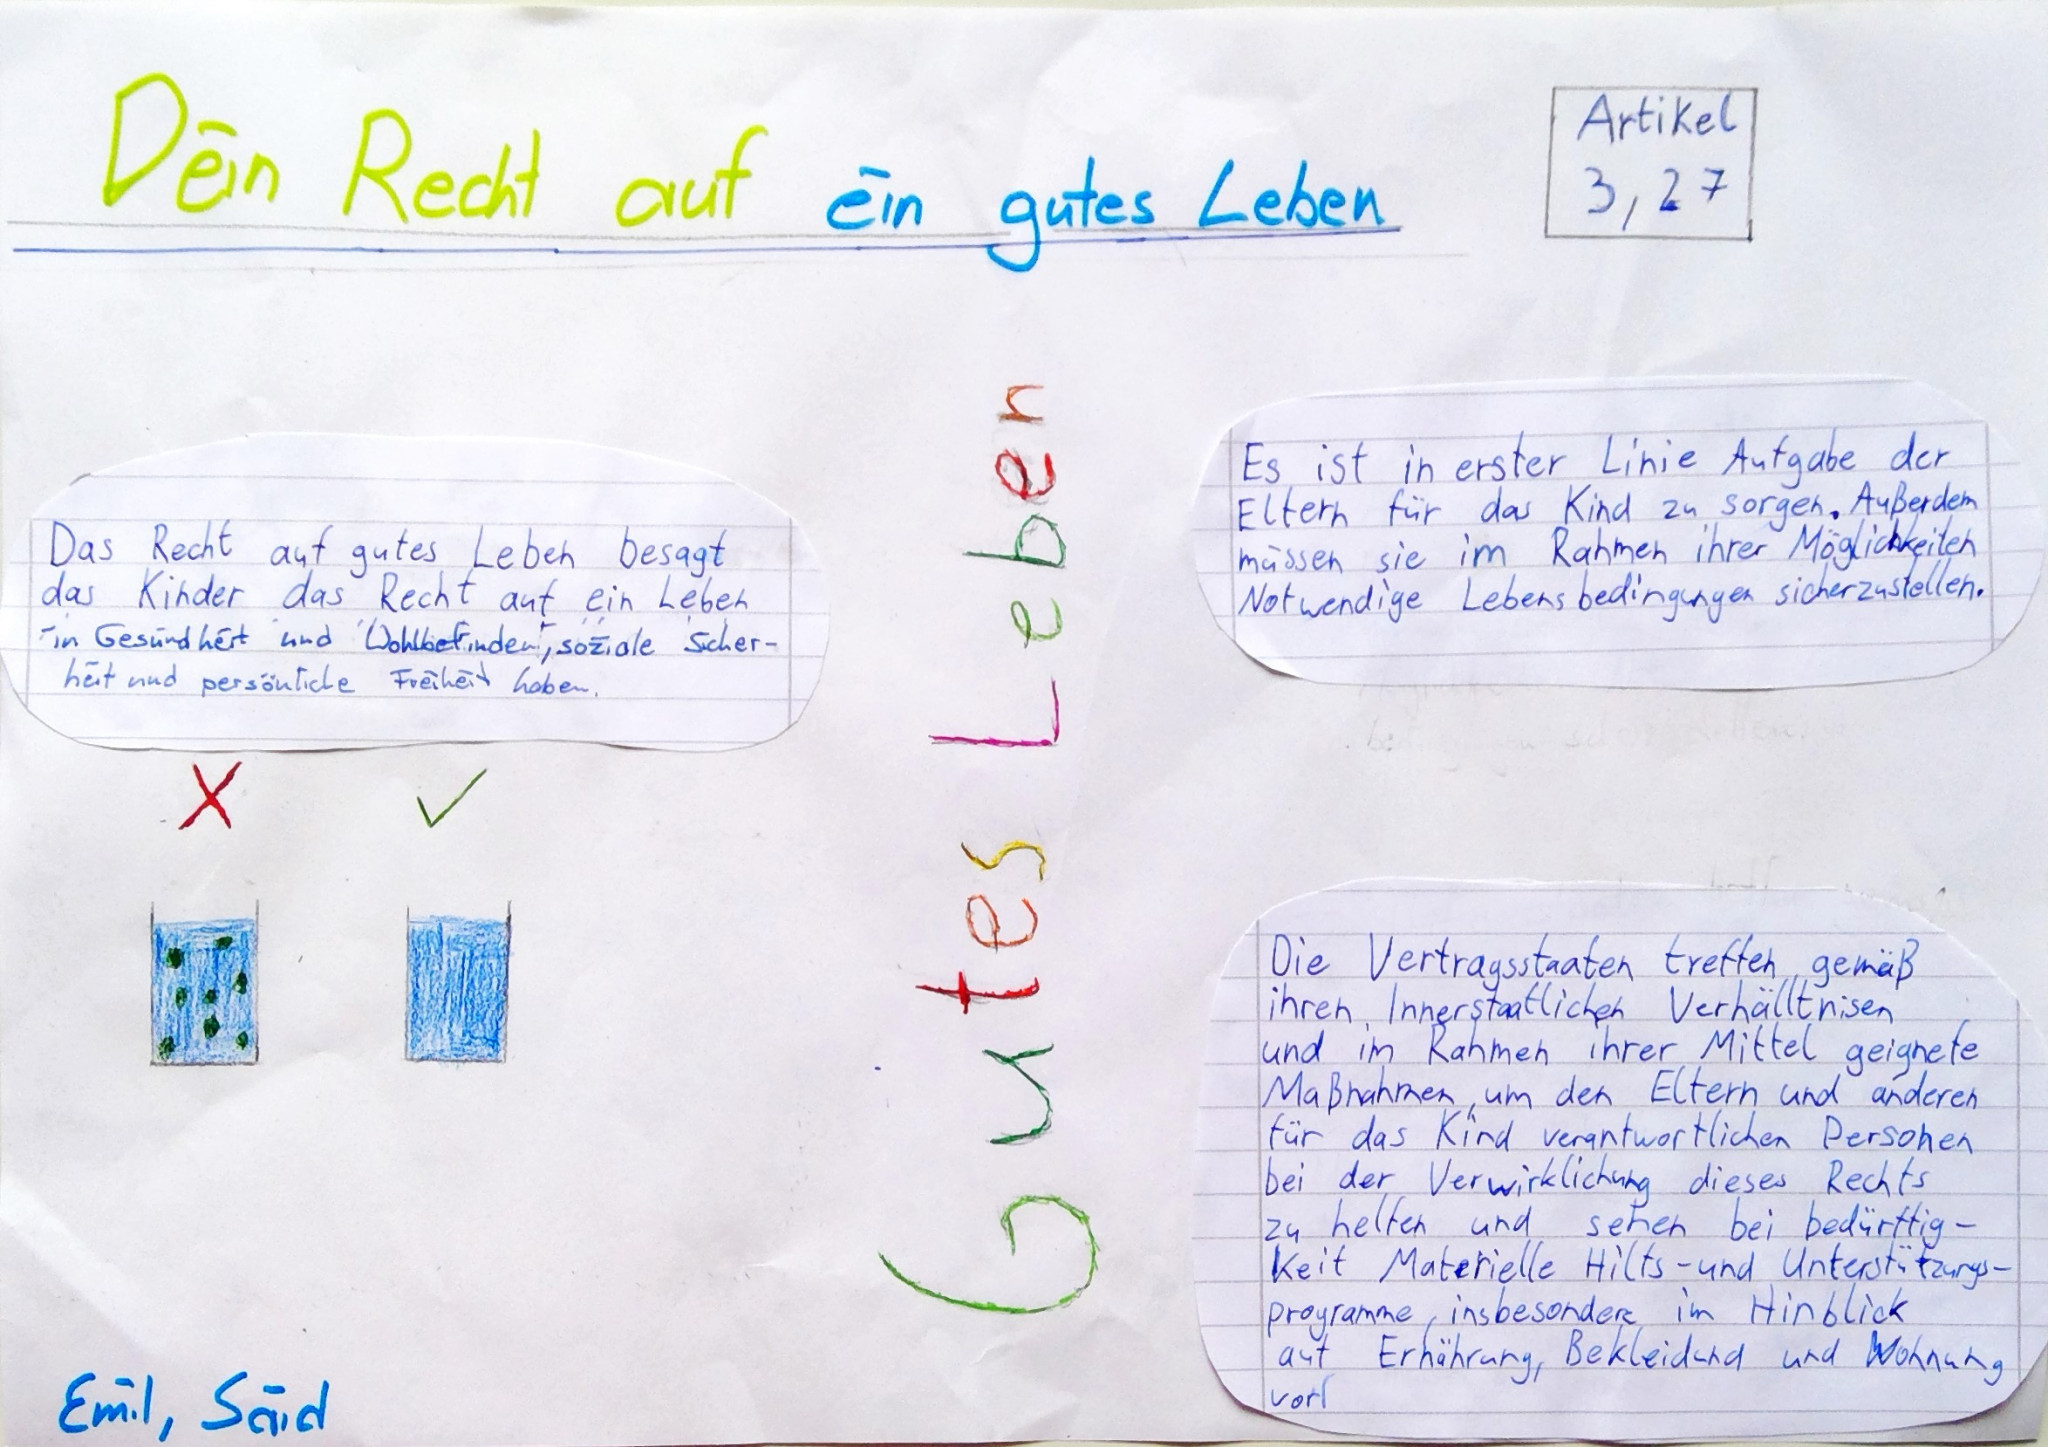 Dein Recht auf ein gutes Leben
Artikel
3, 27
Das Recht auf gutes Leben besagt
das Kinder das Recht auf ein Leben
in Gesundheit und Wohlbefinden, soziale Sicher-
heit und persönliche Freiheit haben.
Gutes Leben
Es ist in erster Linie Aufgabe der
Eltern für das Kind zu sorgen. Außerdem
müssen sie im Rahmen ihrer Möglichkeiten
Notwendige Lebensbedingungen sicherzustellen.
Die Vertragsstaaten treffen gemäß
ihren Innerstaatlichen Verhälltnisen
und im Rahmen ihrer Mittel geignete
Maßnahmen, um den Eltern und anderen
für das Kind verantwortlichen Personen
bei der Verwirklichung dieses Rechts
zu helfen und sehen bei bedürftig-
keit Materielle Hilfs- und Unterstützungs-
programme, insbesondere im Hinblick
auf Ernährung, Bekleidund und Wohnung
vor!
Emil, Said